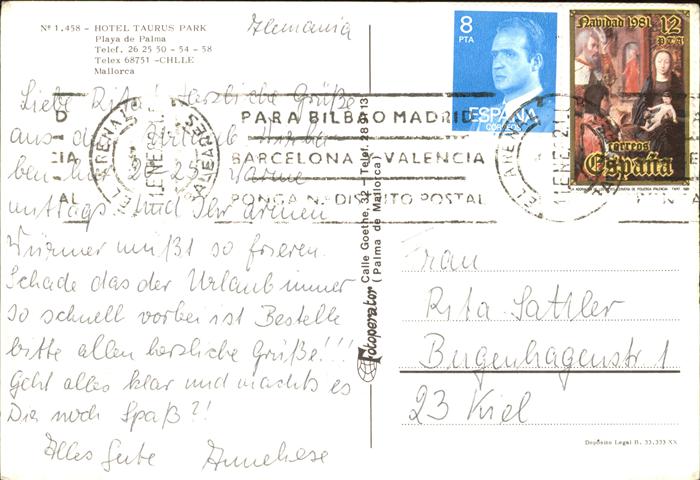 Nº 1.458 - HOTEL TAURUS PARK
Playa de Palma
Telef. 26 25 50 - 54 - 58
Telex 68751 -CHLLE
Mallorca
Alemania
Liebe Rita! Herzliche Grüße
aus dem Urlaub. Wir ha
ben hier 20-25° Wärme
mittags. Und Ihr armen
Würmer müßt so frieren.
Schade das der Urlaub immer
so schnell vorbei ist Bestelle
bitte allen herzliche Grüße!!!
Geht alles klar und macht's es
Dir noch Spaß?!
Alles Gute Anneliese
Fotoperator
Calle Goethe, 32 - Telef. 28 9 13
(Palma de Mallorca)
8
PTA
ESPAÑA
CORREOS
Navidad 1981
12
PTA
correos
España
EL ARENAL
11 ENE 82
BALEARES
PARA BILBAO MADRID
BARCELONA O VALENCIA
PONGA N. DISTRITO POSTAL
EL ARENAL
11 ENE 82
Frau
Rita Sattler
Bugenhagenstr 1
23 Kiel
Depósito Legal B. 33.333-XX